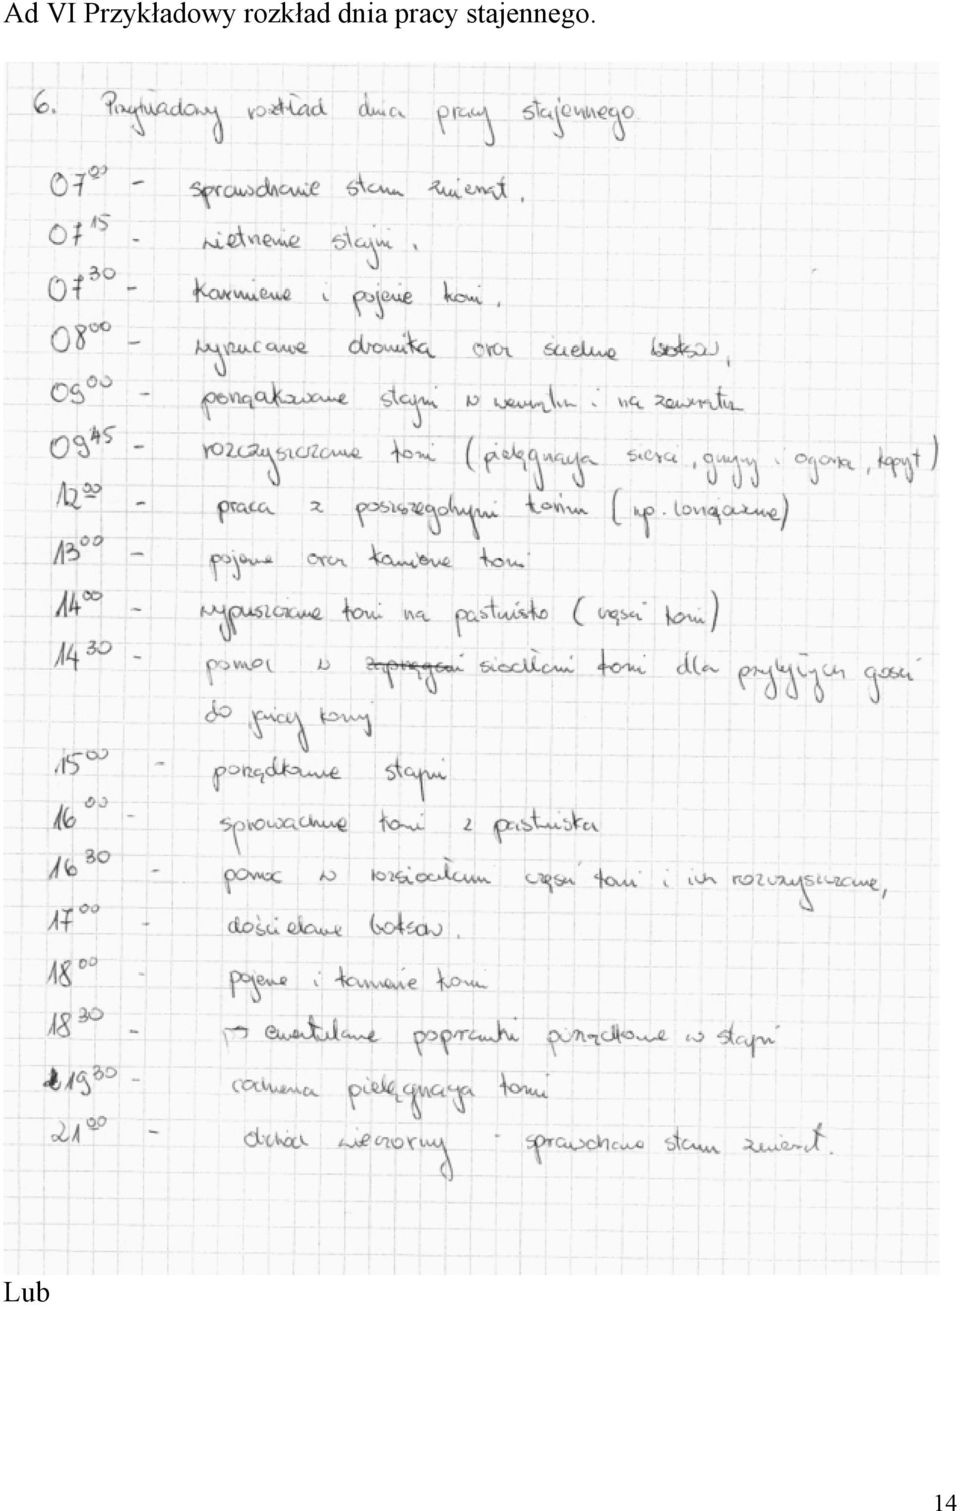 Ad VI Przykładowy rozkład dnia pracy stajennego.
6. Przykładowy rozkład dnia pracy stajennego
07⁰⁰ - sprawdzanie stanu zwierząt.
07¹⁵ - wietrzenie stajni.
07³⁰ - Karmienie i pojenie koni.
08⁰⁰ - wyrzucanie obornika oraz ścielenie boksów,
09⁰⁰ - porządkowanie stajni w wewnątrz i na zewnątrz
09⁴⁵ - rozczyszczanie koni (pielęgnacja sierści, grzywy i ogona, kopyt)
12⁰⁰ - praca z poszczególnymi końmi (np. lonżowanie)
13⁰⁰ - pojenie oraz karmienie koni
14⁰⁰ - wypuszczanie koni na pastwisko (część koni)
14³⁰ - pomoc w siodłaniu koni dla przybyłych gości
do jazdy konnej
15⁰⁰ - porządkowanie stajni
16⁰⁰ - sprowadzanie koni z pastwiska
16³⁰ - pomoc w rozsiodłaniu części koni i ich rozczyszczanie,
17⁰⁰ - dościelanie boksów.
18⁰⁰ - pojenie i karmienie koni
18³⁰ - → ewentualne poprawki porządkowe w stajni
19³⁰ - codzienna pielęgnacja koni
21⁰⁰ - obchód wieczorny - sprawdzanie stanu zwierząt.
Lub
14